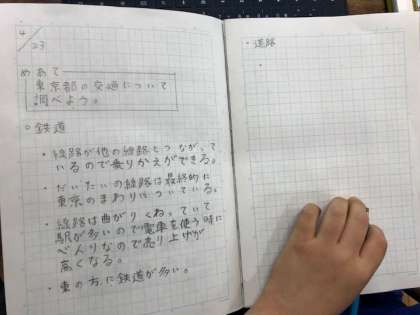 4/23
めあて
東京都の交通について
調べよう。
○鉄道
・線路が他の線路とつながって
いるので乗りかえができる。
・だいたいの線路は最終的に
東京のまわりについている。
・線路は曲がりくねっていて
駅が多いので電車を使う時に
べんりなので売り上げが
高くなる。
・東の方に鉄道が多い。
・道路
・